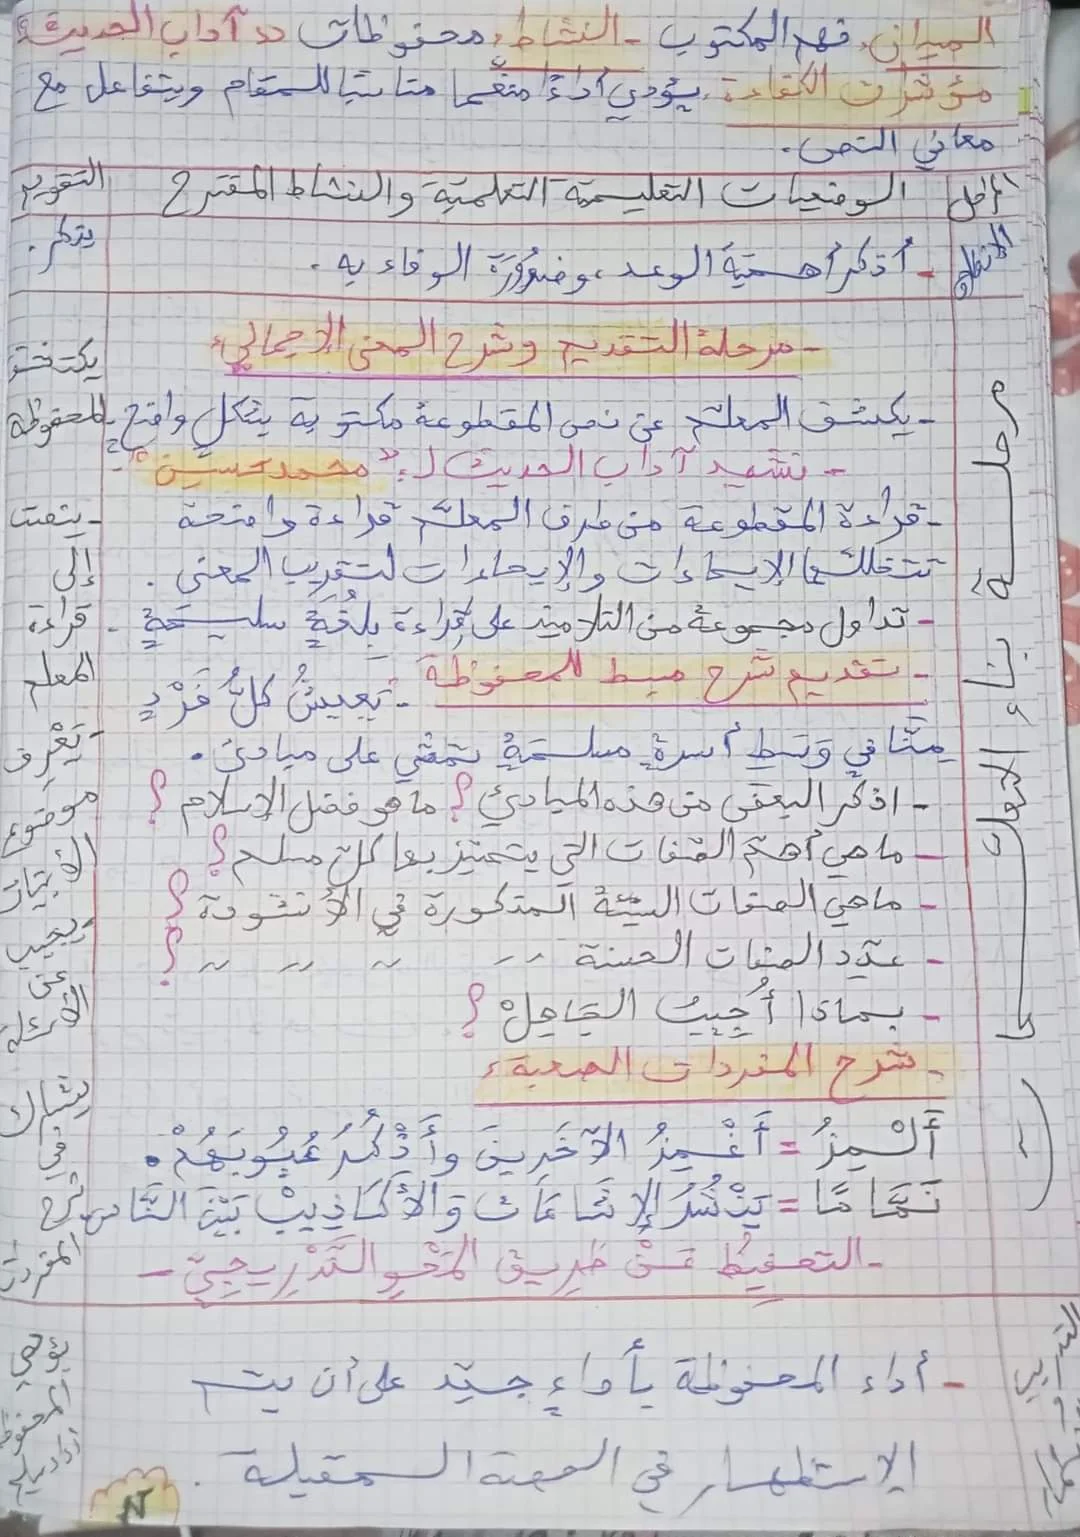 الميدان: فهم المكتوب - النشاط: محفوظات " آداب الحديث "
مؤشرات الكفاءة: يؤدي أداءً منغما مناسبا للمقام ويتفاعل مع
معاني النص.
المراحل الوضعيات التعليمية التعلمية والنشاط المقترح التقويم
الانطلاق - أذكر أهمية الوعد، وضرورة الوفاء به. يتذكر.
- مرحلة التقديم وشرح المعنى الإجمالي:
- يكشف المعلم عن نص المقطوعة مكتوبة بشكل واضح
يكتشف
المحفوظة
- نشيد آداب الحديث لـ: "محمد حسين"
- قراءة المقطوعة من طرف المعلم قراءة واضحة
تتخللها الإيماءات والإيحاءات لتقريب المعنى.
- ينصت
إلى
قراءة
المعلم
- تداول مجموعة من التلاميذ على قراءة بلغةٍ سليمةٍ.
- تقديم شرح مبسط للمحفوظة - يَعِيشُ كلُّ فَرْدٍ
مِنَّا في وَسَطِ أسرةٍ مسلمةٍ تمشي على مبادئ.
- يَعْرِف
موضوع
الأبيات
- اذكر البعض من هذه المبادئ؟ ما هو فضل الإسلام؟
- ما هي أهم الصفات التي يتميز بها كل مسلم؟
- ماهي الصفات السيئة المذكورة في الأنشودة؟
- عدّد الصفات الحسنة " " " "؟
- بماذا أُجِيبُ الجَاهِلَ؟
- يجيب
عن
الأسئلة
مرحلة بناء التعلمات
- شرح المفردات الصعبة:
أَلْمِزُ = أَغْمِزُ الآخَرِينَ وأَذْكُرُ عُيُوبَهُمْ.
نَمَّامًا = يَنْشُرُ الإِشَاعَاتَ وَالأَكَاذِيبْ بَيْنَ النَّاس
يشارك
في
شرح
المفردات
- التحفيظُ عَنْ طَرِيق المَحْوِ التَّدْرِيجِيّ -
التدريب
- أداء المحفوظة بأداءٍ جيّد على أن يتم
الاستظهار في الحصة المقبلة.
يؤدي
المحفوظة
N